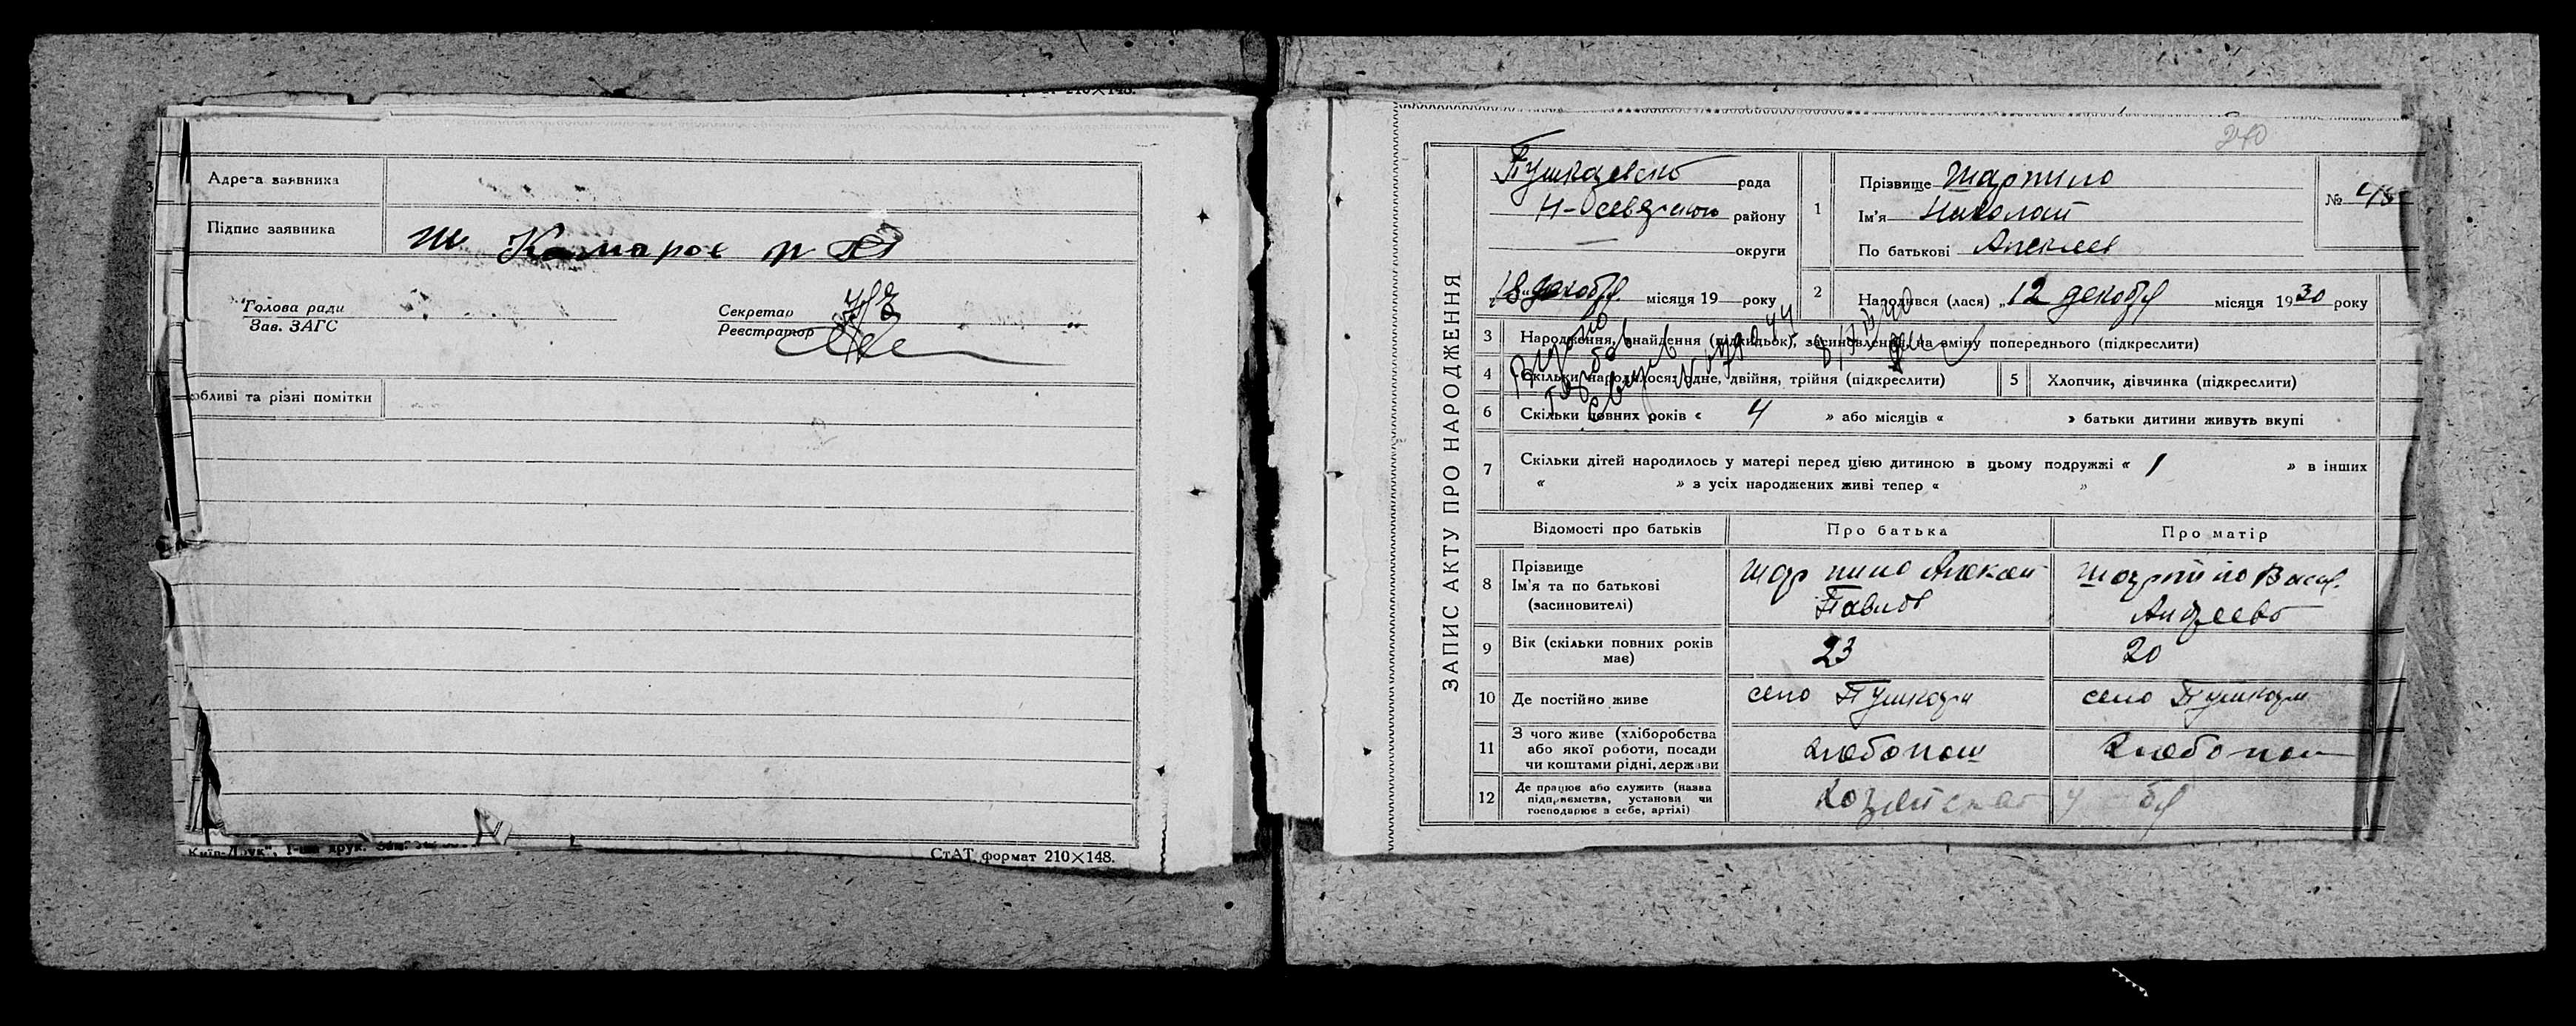 210×148.
Адреса заявника
Підпис заявника
Голова ради
Зав. ЗАГС
Секретар
Реєстратор
обливі та різні помітки
Київ-Друк", 1-ша друк.
СтАТ формат 210×148.
240
ЗАПИС АКТУ ПРО НАРОДЖЕННЯ
рада
району
округи
18 декобря місяця 19 року
1
Прізвище Шарпило
Ім'я Николай
По батькові Алексеев
№ 48
2
Народився (лася) „12 декобря місяця 1930 року
3 Народження, знайдення (підкидьок), засиновлення, на зміну попереднього (підкреслити)
4 Скільки народилося: одне, двійня, трійня (підкреслити) 5 Хлопчик, дівчинка (підкреслити)
6 Скільки повних років « 4 » або місяців « » батьки дитини живуть вкупі
7 Скільки дітей народилось у матері перед цією дитиною в цьому подружжі « 1 » в інших
« » з усіх народжених живі тепер « »
Відомості про батьків Про батька Про матір
8 Прізвище
Ім'я та по батькові
(засиновителі)
Шарпило Алексей
Павлов
Шарпило Васил.
Андреево
9 Вік (скільки повних років
має)
23 20
10 Де постійно живе село Пушкари село Пушкари
11 З чого живе (хліборобства
або якої роботи, посади
чи коштами рідні, держави
хлебопаш хлебопаш
12 Де працює або служить (назва
підприємства, установи чи
господарює з себе, артілі)